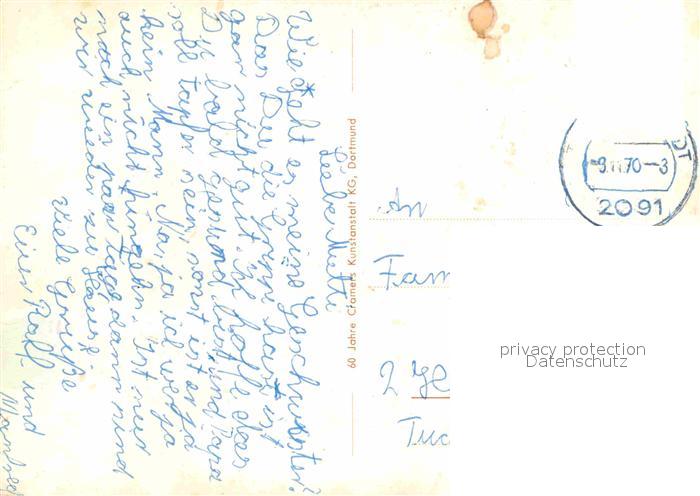 Liebe Mutti
Wie geht es meine Geschwister?
Das Du die Grippe hast ist
gar nicht gut. Ich hoffe das
Du bald gesund bist und Papa
soll tapfer sein sonst ist er ja
kein Mann. Na, ja ich werd ja
auch nicht hingehn. Ist nur
noch ein paar Tage dann sind
wir wieder zu Hause.
Viele Grüße
Euer Ralf und
Manfred
60 Jahre Cramers Kunstanstalt KG, Dortmund
DT
-9.11.70-3
2091
An
Fam
2
privacy protection
Datenschutz